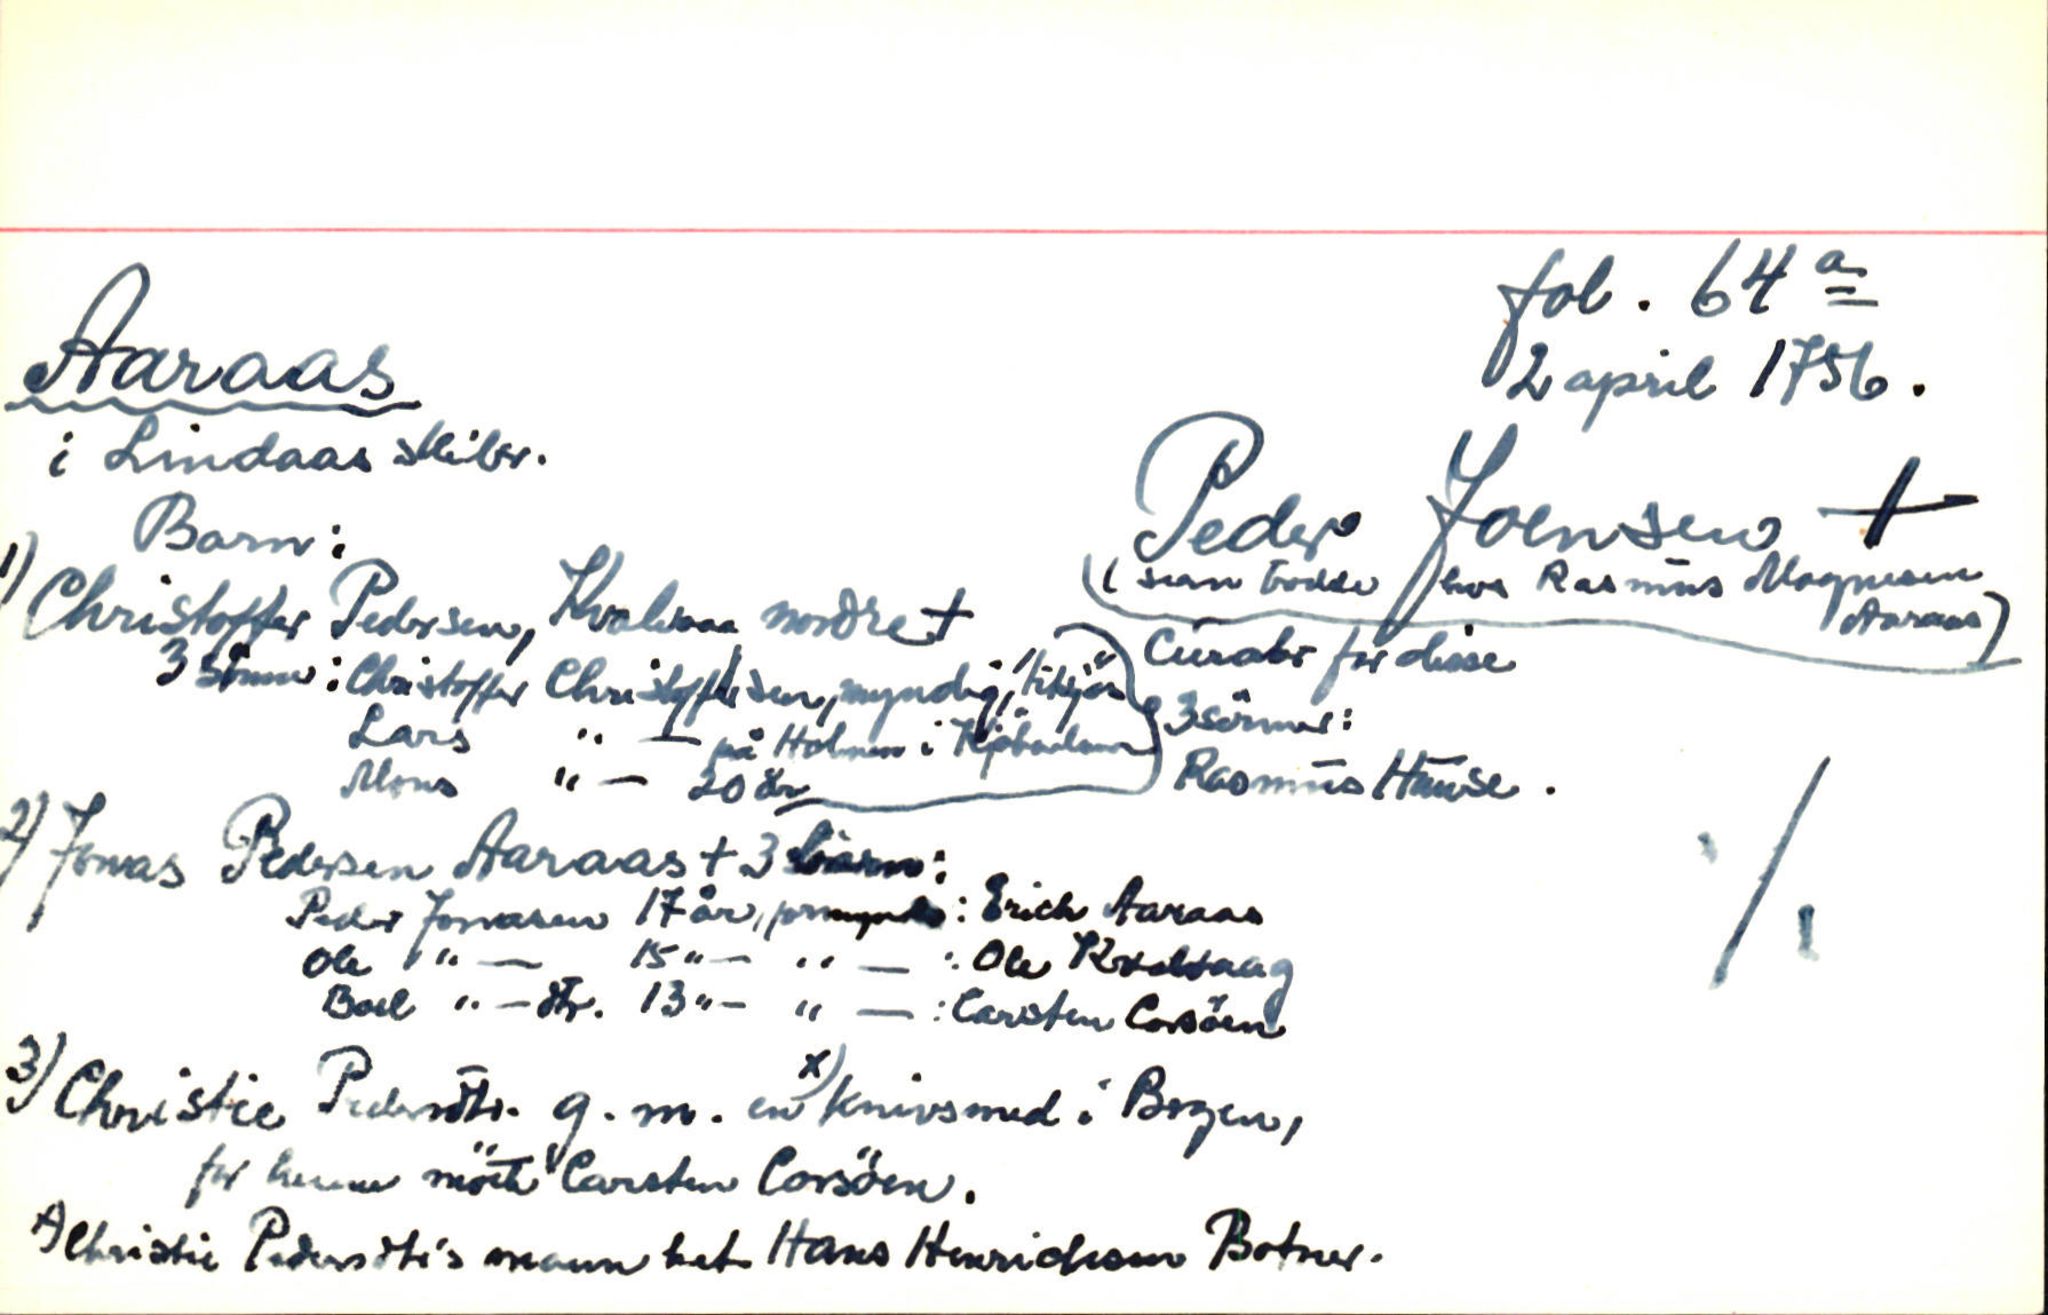 fol. 64 a
2 april 1756.
Aaraas
i Lindaas skibr.
Peder Joensen +
(sean bodde hos Rasmus Magnesen
Aaraas)
Barn:
1) Christoffer Pedersen, nordre +
3 sönner: Christoffer Christoffersen, myndig, "tilsjøs"
Lars " — på Holmen i Kjöbenhavn
Mons " — 20 år
Curator for disse
3 sönner:
Rasmus Hauso.
2) Jonas Pedersen Aaraas + 3 barn:
Peder Jonasen 17 år, formynder: Erich Aaraas
Ole " — 15 " — " — : Ole
Boel " — dtr. 13 " — " — : Carsten Corsöen
3) Christie Pedersdtr. g. m. en x) knivsmed i Bergen,
for henne mötte Carsten Corsöen.
x) Christie Pedersdtr's mann het Hans Henrichsen Botner.
./.